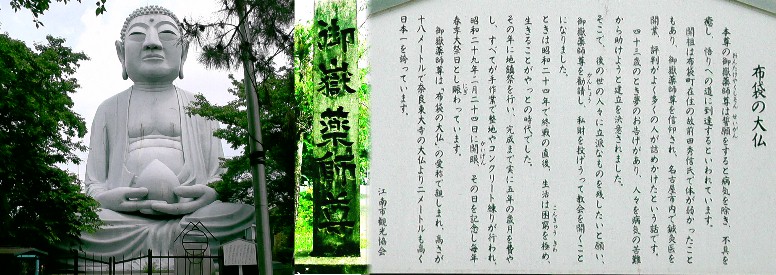 御嶽薬師尊
布袋の大仏
本尊の御嶽薬師尊は誓願をすると病気を除き、不具を
おんたけやくしそん　せいがん
癒し、悟りへの道に到達するといわれています。
開祖は布袋町在住の故前田秀信氏で体が弱かったこと
もあり、御嶽薬師尊を信仰され、名古屋市内で鍼灸医を
開業、評判がよく多くの人が詰めかけたという話です。
四十三歳のとき夢のお告げがあり、人々を病気の苦難
から助けようと建立を決意されました。
そこで、後の世の人々に立派なものを残したいと願い、
御嶽薬師尊を勧請し、私財を投げうって教会を開くこと
かんじょう
になりました。
ときは昭和二十四年で終戦の直後、生活は困窮を極め、
こんきゅう　きわ
生きることがやっとの時代でした。
その年に地鎮祭を行い、完成まで実に五年の歳月を費や
し、すべてが手作業で整地やコンクリート練りが行われ、
昭和二十九年二月二十四日に開眼、その日を記念し毎年
かいげん
春季大祭日とし賑わっています。
にぎ
御嶽薬師尊は「布袋の大仏」の愛称で親しまれ、高さが
十八メートルで奈良東大寺の大仏より二メートルも高く
日本一を誇っています。
江南市観光協会